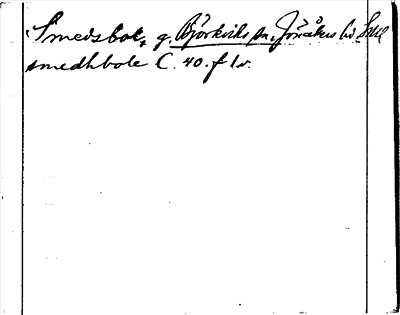 Smedsbol, g. Björkviks sn, Jönåkers hd Sml
smedhbole C. 40. f 1v.